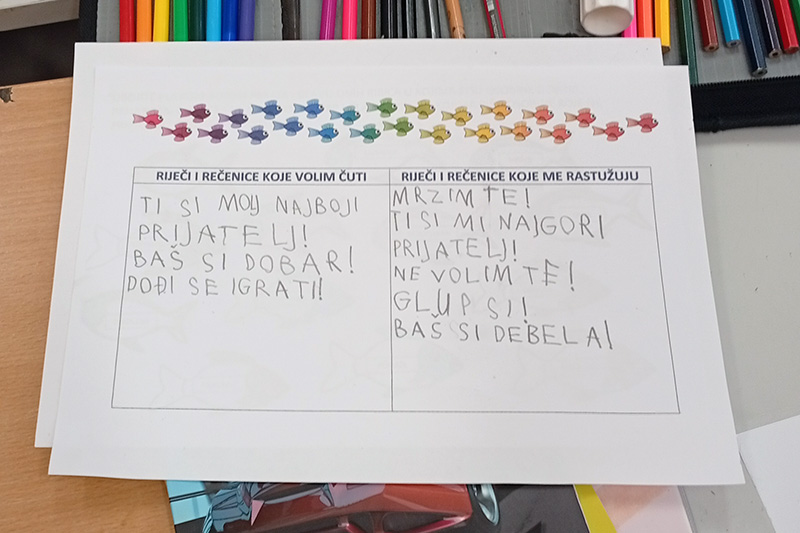 RIJEČI I REČENICE KOJE VOLIM ČUTI
TI SI MOIJ NAJBOJI
PRIJATELJ!
BAŠ SI DOBAR!
DOĐI SE IGRATI!
RIJEČI I REČENICE KOJE ME RASTUŽUJU
MRZIM TE!
TI SI MI NAJGORI
PRIJATELJ!
NE VOLIM TE!
GLUP SI!
BAŠ SI DEBELA!